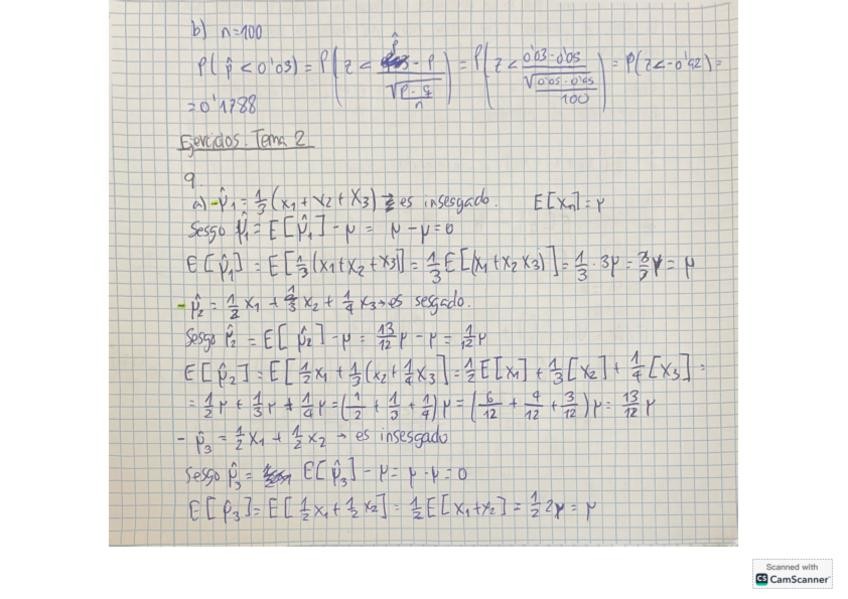 b) n=100
P( p̂ < 0'03) = P( z < (p̂ - p)/√(p·q/n) ) = P( z < (0'03-0'05)/√(0'05·0'95/100) ) = P(z<-0'92) =
= 0'1788
Ejercicios. Tema 2
9
a) - μ̂₁ = 1/3 (x₁ + x₂ + x₃) → es insesgado. E[xₙ] = μ
Sesgo μ̂₁ = E[μ̂₁] - μ = μ - μ = 0
E[μ̂₁] = E[1/3 (x₁+x₂+x₃)] = 1/3 E[(x₁+x₂ x₃)] = 1/3 · 3μ = 3/3 μ = μ
- μ̂₂ = 1/2 x₁ + 1/3 x₂ + 1/4 x₃ → es sesgado.
Sesgo μ̂₂ = E[μ̂₂] - μ = 13/12 μ - μ = 1/12 μ
E[μ̂₂] = E[1/2 x₁ + 1/3 (x₂ + 1/4 x₃] = 1/2 E[x₁] + 1/3 [x₂] + 1/4 [x₃] =
= 1/2 μ + 1/3 μ + 1/4 μ = (1/2 + 1/3 + 1/4) μ = (6/12 + 4/12 + 3/12) μ = 13/12 μ
- μ̂₃ = 1/2 x₁ + 1/2 x₂ → es insesgado
Sesgo μ̂₃ = E[μ̂₃] - μ = μ - μ = 0
E[μ̂₃] = E[1/2 x₁ + 1/2 x₂] = 1/2 E[x₁+x₂] = 1/2 2μ = μ
Scanned with
CS CamScanner